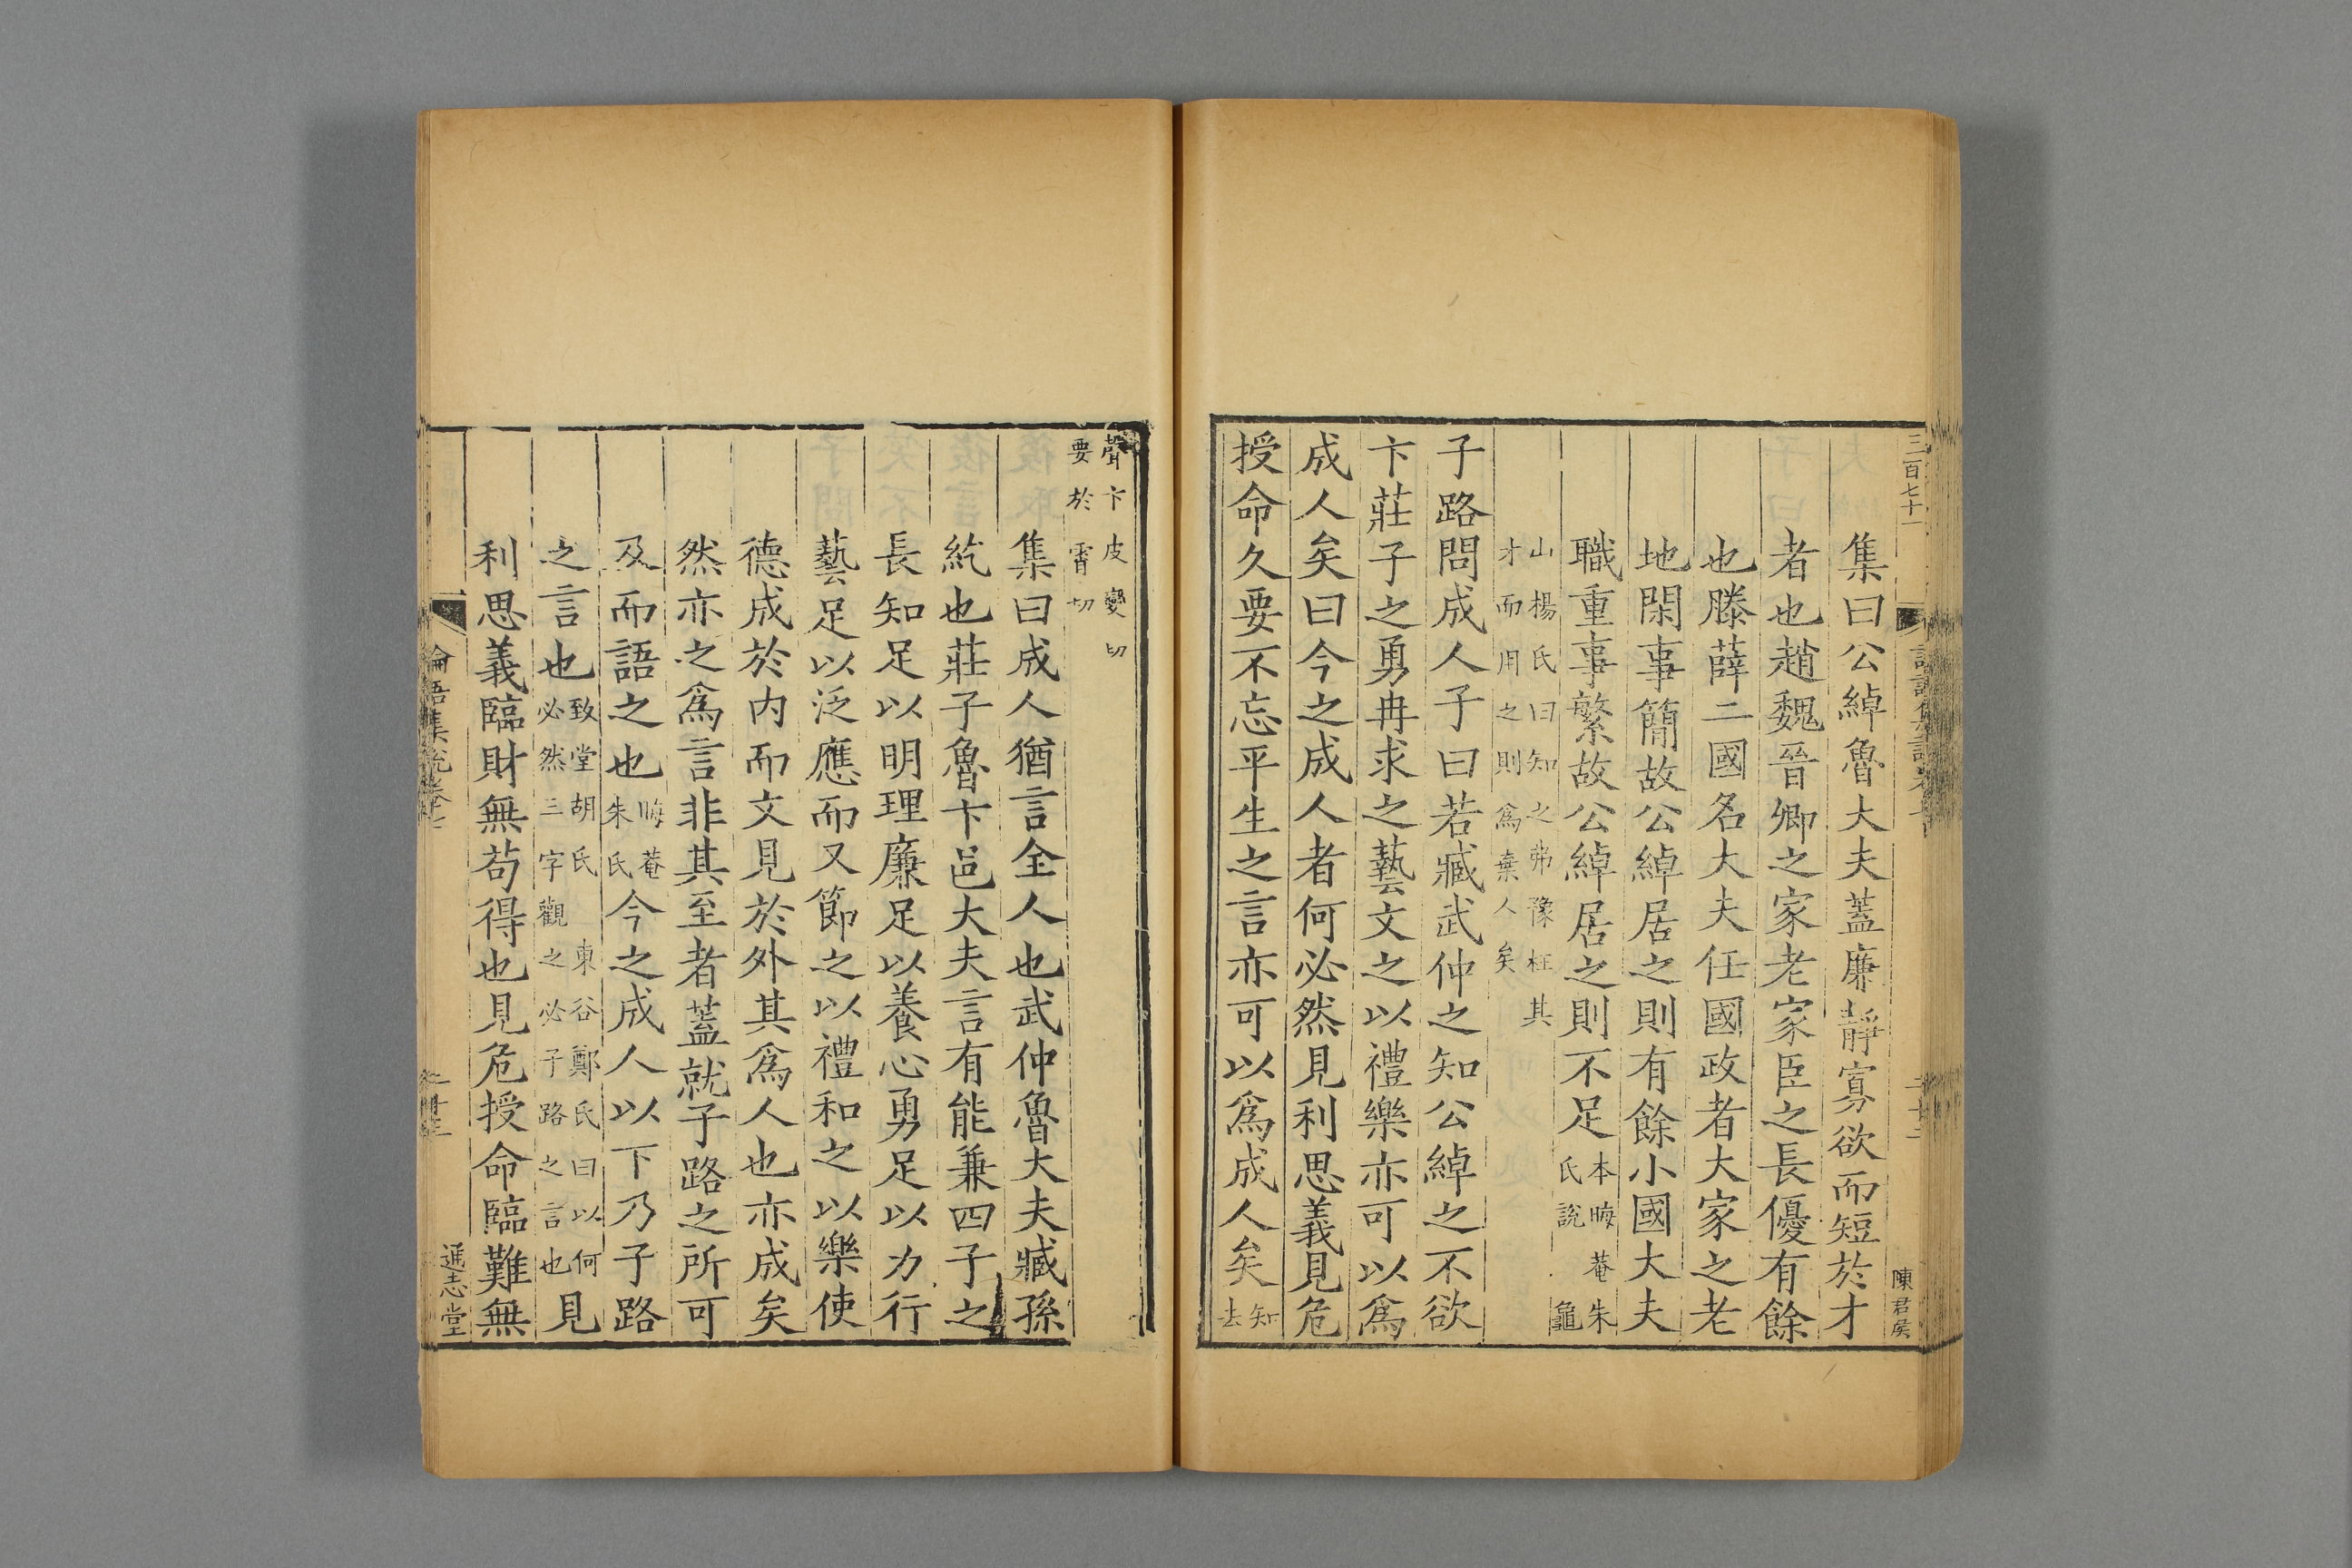 三百七十一
陳君侯
集曰公綽魯大夫蓋廉靜寡欲而短於才
者也趙魏晉卿之家老家臣之長優有餘
也滕薛二國名大夫任國政者大家之老
地閑事簡故公綽居之則有餘小國大夫
職重事繁故公綽居之則不足本晦菴朱
氏說龜
山楊氏曰知之弗豫枉其
才而用之則爲棄人矣
子路問成人子曰若臧武仲之知公綽之不欲
卞莊子之勇冉求之藝文之以禮樂亦可以爲
成人矣曰今之成人者何必然見利思義見危
授命久要不忘平生之言亦可以爲成人矣知
去
聲卞皮變切
要於霄切
集曰成人猶言全人也武仲魯大夫臧孫
紇也莊子魯卞邑大夫言有能兼四子之
長知足以明理廉足以養心勇足以力行
藝足以泛應而又節之以禮和之以樂使
德成於内而文見於外其爲人也亦成矣
然亦之爲言非其至者蓋就子路之所可
及而語之也晦菴
朱氏今之成人以下乃子路
之言也致堂胡氏 東谷鄭氏曰以何
必然三字觀之必子路之言也見
利思義臨財無苟得也見危授命臨難無
論語集說卷七
通志堂